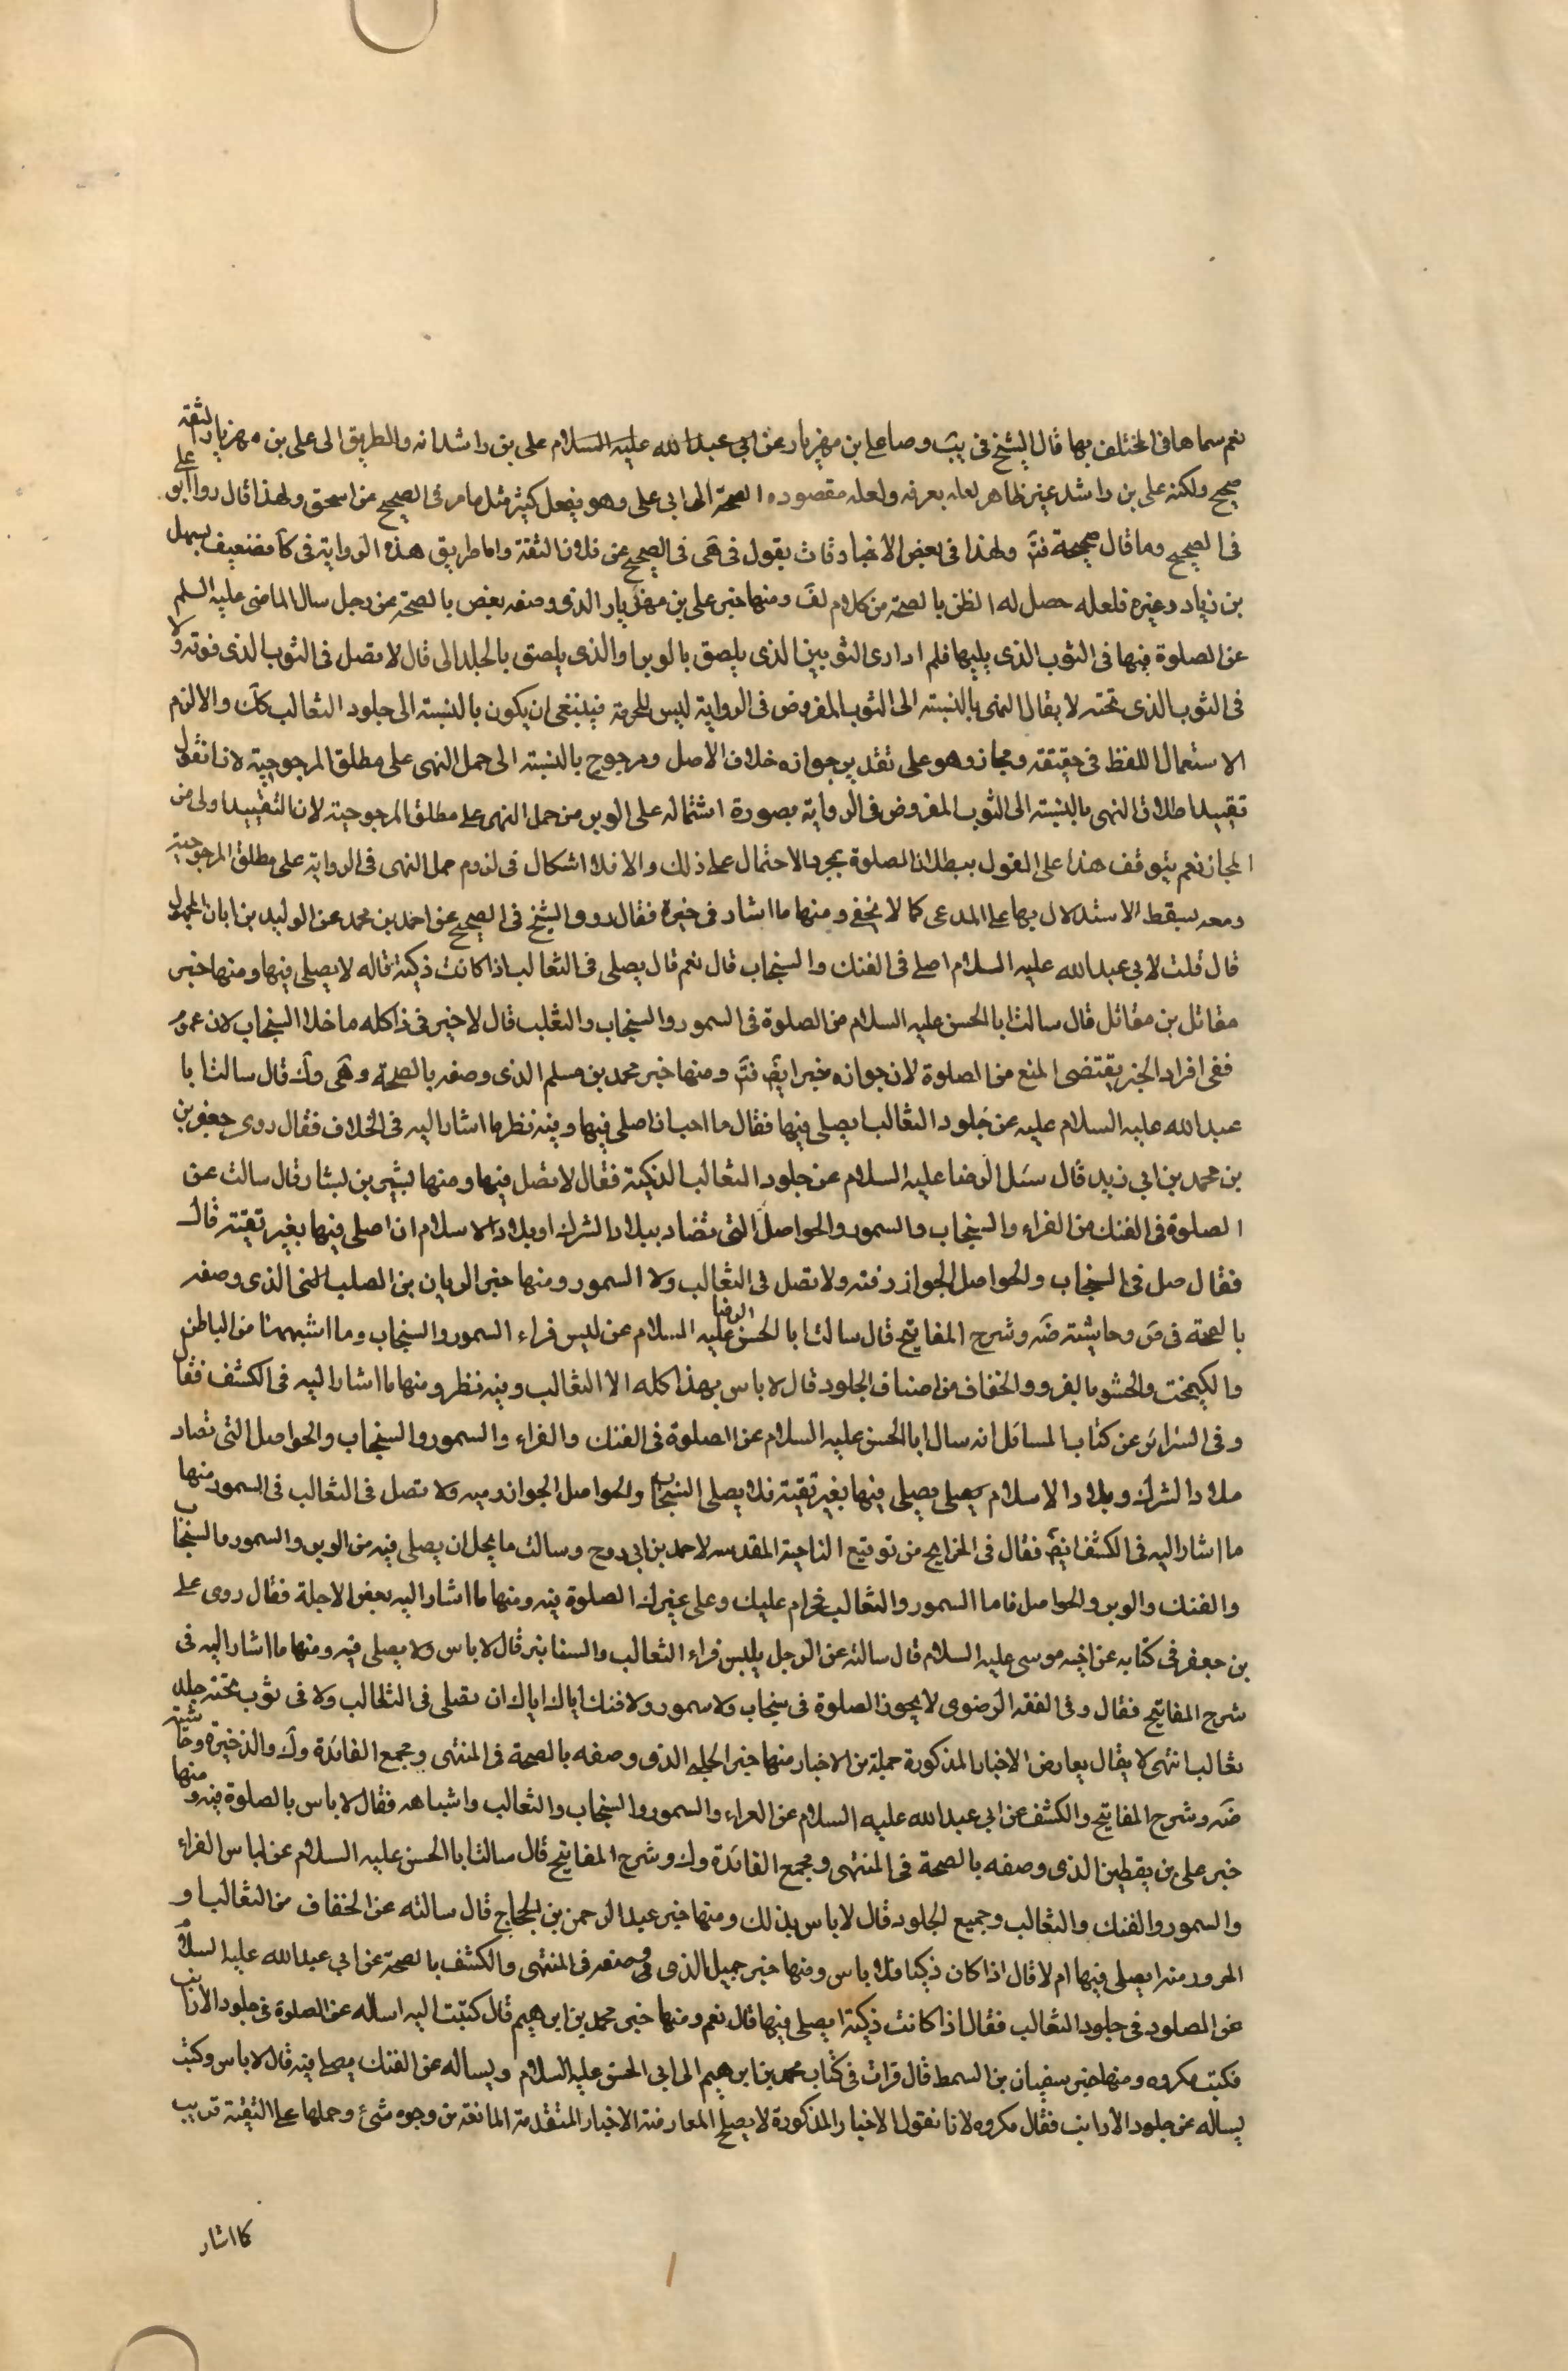 نعم سماها فى المختلف بها قال الشيخ فى يب وصا على ابن مهزيار عن ابى عبد الله عليه السلام على بن راشد انه والطريق الى على بن مهزيار الثقة
صحيح ولكنه على بن راشد غير ظاهر لعله يعرفه ولعله مقصوده الصحة الى ابى على وهو يفعل كثير مثل ما مر فى الصحيح عن اسحق ولهذا قال رواه ابو على
فى الصحيح وما قال صحيحة فت ولهذا فى بعض الاخبار فات يقول فى هى فى الصحيح عن فلان الثقة واما طريق هذه الرواية فى كا فضعيف بسهل
بن زياد وغيره فلعله حصل له الظن بالصحة من كلام لف ومنها خبر على بن مهزيار الذى وصفه بعض بالصحة عن رجل سال الماضى عليه السلم
عن الصلوة فيها فى الثوب الذى يليها فلم ادر اى الثوبين الذى يلصق بالوبر او الذى يلصق بالجلد الى قال لا تصل فى الثوب الذى فوقه ولا
فى الثوب الذى تحته لا يقال النهى بالنسبة الى الثوب المفروض فى الرواية ليس للحرمة فينبغى ان يكون بالنسبة الى جلود الثعالب كك والا لزم
الاستعمال اللفظ فى حقيقته ومجازه وهو على تقدير جوازه خلاف الاصل ومرجوح بالنسبة الى حمل النهى على مطلق المرجوحية لانا نقول
تقييد اطلاق النهى بالنسبة الى الثوب المفروض فى الرواية بصورة اشتماله على الوبر من حمل النهى على مطلق المرجوحية لان التقييد اولى من
المجاز نعم يتوقف هذا على القول ببطلان الصلوة بمجرد الاحتمال على ذلك والا فلا اشكال فى لزوم حمل النهى فى الرواية على مطلق المرجوحية
ومعه يسقط الاستدلال بها على المدعى كما لا يخفى ومنها ما اشار فى خيرة فقال روى الشيخ فى الصحيح عن احمد بن محمد عن الوليد بن ابان المجهول
قال قلت لابى عبد الله عليه السلام اصلى فى الفنك والسنجاب قال نعم قال يصلى فى الثعالب اذا كانت ذكية قاله لا يصلى فيها ومنها خبر
مقاتل بن مقاتل قال سالت ابا الحسن عليه السلام من الصلوة فى السمور والسنجاب والثعلب قال لا خير فى ذا كله ما خلا السنجاب لان عموم
ففى افراد الخير يقتضى المنع من الصلوة لان جوازه خير ايض فت ومنها خبر محمد بن مسلم الذى وصفه بالصحة وهى وك قال سالت ابا
عبد الله عليه السلام عليه عن جلود الثعالب ايصلى فيها فقال ما احب ان اصلى فيها وفيه نظر ما اشار اليه فى الخلاف فقال روى جعفر بن
بن محمد بن ابى زيد قال سئل الرضا عليه السلام عن جلود الثعالب الذكية فقال لا تصل فيها ومنها بشير بن بشار قال سالت عن
الصلوة فى الفنك من الفراء والسنجاب والسمور والحواصل التى تصاد ببلاد الشرك او بلاد الاسلام ان اصلى فيها بغير تقية قال
فقال صل فى السنجاب والحواصل الجوازرفته ولا تصل فى الثعالب ولا السمور ومنها خبر الريان بن الصلت الذى وصفه
بالصحة فى ض وحاشية ضه وشرح المفاتيح قال سالت ابا الحسن الرضا عليه السلام عن لبس فراء السمور والسنجاب وما اشبههنا من الباطن
والكيمخت والحشو بالفرو والخفاف من اصناف الجلود قال لا باس بهذا كله الا الثعالب وفيه نظر ومنها ما اشار اليه فى الكشف فقال
وفى السرائر عن كتاب المسائل انه سال ابا الحسن عليه السلام عن الصلوة فى الفنك والفراء والسمور والسنجاب والحواصل التى تصاد
ملاد الشرك وبلاد الاسلام يصلى يصلى فيها بغير تقية فلا يصلى السنجاب والحواصل الجوازرميه ولا تصل فى الثعالب فى السمور منها
ما اشار اليه فى الكشف ايض فقال فى الخرايج من توقيع الناحية المقدسه لاحمد بن ابى روح وسالت ما يحل ان يصلى فيه من الوبر والسمور والسنجاب
والفنك والوبر والحواصل فاما السمور والثعالب فحرام عليك وعلى غيرك الصلوة فيه ومنها ما اشار اليه بعض الاجلة فقال روى على
بن جعفر فى كتابه عن اخيه موسى عليه السلام قال سالته عن الرجل يلبس فراء الثعالب والسنانير قال لا باس ولا يصلى فيه ومنها ما اشار اليه فى
شرح المفاتيح فقال وفى الفقه الرضوى لا يجوز الصلوة فى سنجاب ولا سمور ولا فنك اياك اياك ان تصلى فى الثعالب ولا فى ثوب تحته جلد
ثعالب انتهى لا يقال يعارض الاخبار المذكورة جملة من الاخبار منها خبر الحلبى الذى وصفه بالصحة فى المنتهى ومجمع الفائدة وك والذخيرة وحاشية
ضه وشرح المفاتيح والكشف عن ابى عبد الله عليه السلام عن الفراء والسمور والسنجاب والثعالب واشباهه فقال لا باس بالصلوة فيه ومنها
خبر على بن يقطين الذى وصفه بالصحة فى المنتهى ومجمع الفائدة وك وشرح المفاتيح قال سالت ابا الحسن عليه السلام عن لباس الفراء
والسمور والفنك والثعالب وجميع الجلود قال لا باس بذلك ومنها خبر عبد الرحمن بن الحجاج قال سالته عن الخفاف من الثعالب او
الجرود منه ايصلى فيها ام لا قال اذا كان ذكيا فلا باس ومنها خبر جميل الذى وصفه فى المنتهى والكشف بالصحة عن ابى عبد الله عليه السلام
عن الصلود فى جلود الثعالب فقال اذا كانت ذكية ايصلى فيها قال نعم ومنها خبر محمد بن ابرهيم قال كتبت اليه اساله عن الصلوة فى جلود الارانب
فكتب مكروه ومنها خبر سفيان بن السمط قال قرات فى كتاب محمد بن ابرهيم الى ابى الحسن عليه السلام ويساله عن الفنك يصلى فيه قال لا باس وكتب
يساله عن جلود الارانب فقال مكروه لانا نقول الاخبار المذكورة لا يصلح المعارضة الاخبار المتقدمة المانعة من وجوه شئ وحملها على التقية قريب
كما اشار